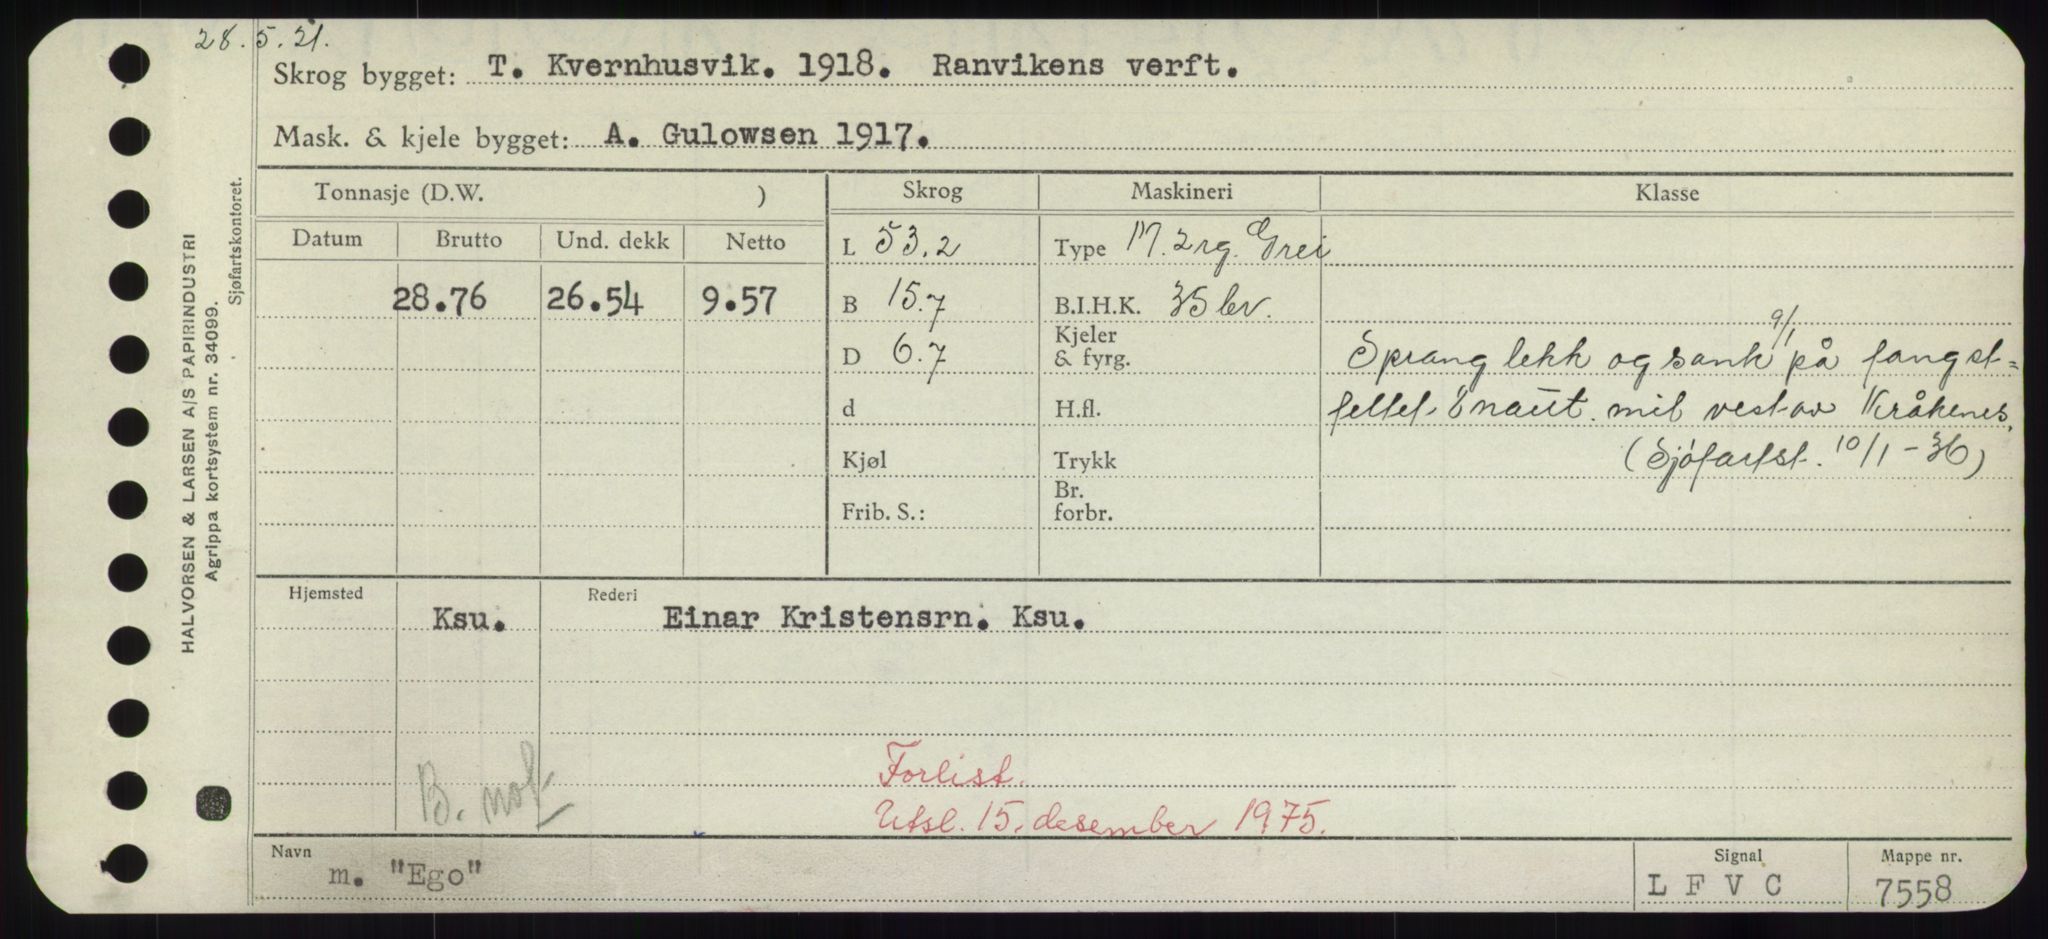 28.5.21.
Skrog bygget: T. Kvernhusvik. 1918. Ranvikens verft.
Mask. & kjele bygget: A. Gulowsen 1917.
HALVORSEN & LARSEN A/S PAPIRINDUSTRI
Agrippa kortsystem nr. 34099.
Sjøfartskontoret.
Tonnasje (D.W. ) Skrog Maskineri Klasse
Datum Brutto Und. dekk Netto L 53.2 Type M. 2 rg. Grei
28.76 26.54 9.57 B 15.7 B.I.H.K. 35 
D 6.7 Kjeler & fyrg. Sprang lekk og sank 9/1 på fangst=
d H.fl. feltet naut. mil vest av Kråkenes.
Kjøl Trykk (Sjøfartst. 10/1-36)
Frib. S.: Br. forbr.
Hjemsted Rederi
Ksu. Einar Kristensrn. Ksu.
Forlist.
B. not Utsl. 15. desember 1975.
Navn Signal Mappe nr.
m. "Ego" L F V C 7558